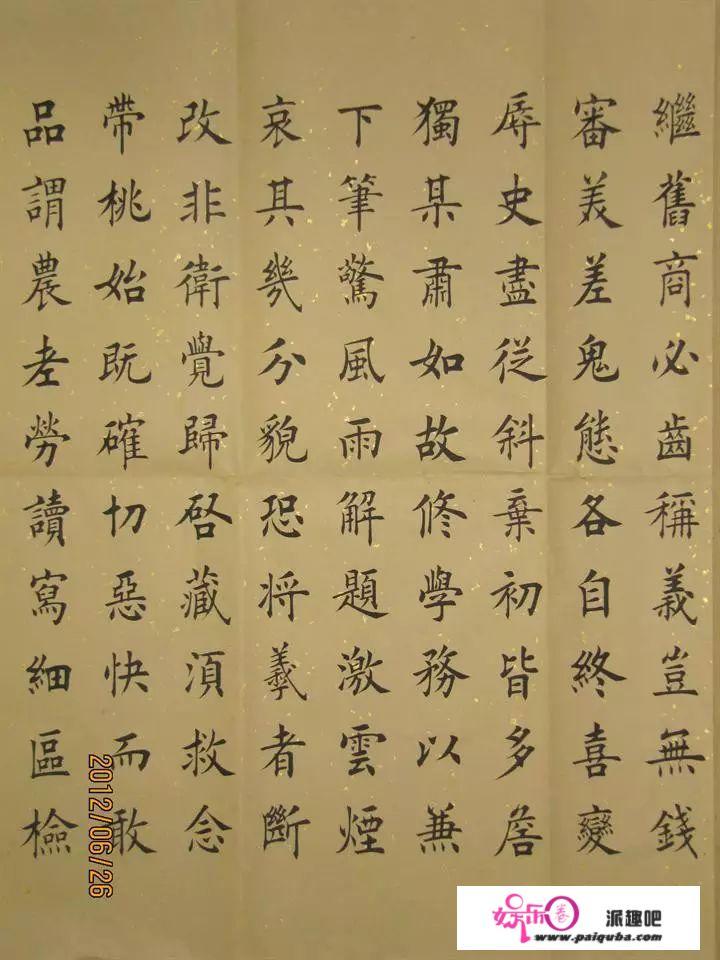 繼舊商必齒稱義豈無錢
審美差鬼態各自終喜變
辱史盡從斜棄初皆多詹
獨某肅如故修學務以兼
下筆驚風雨解題激雲煙
哀其幾分貌恐將羲者斷
改非衛覺歸启藏湏救念
帶桃始既確切惡快而敢
品謂農老勞讀寫細區檢
2012/06/26
娱乐圈卷
派趣吧
www.paiquba.com